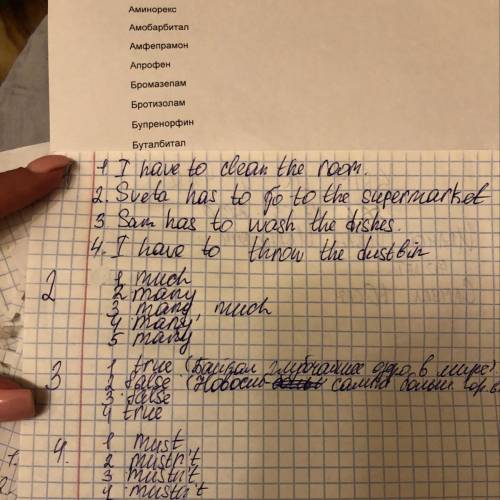 Аминорекс
Амобарбитал
Амфепрамон
Апрофен
Бромазепам
Бротизолам
Бупренорфин
Буталбитал
1. I have to clean the room.
2. Sveta has to go to the supermarket
3. Sam has to wash the dishes.
4. I have to throw the dustbin
2 1 much
2 many
3 many, much
4 many
5 many
3 1 true (Байкал глубочайшее озеро в мире)
2 false (Новосиб самый больш. гор. в
3 false
4 true
4. 1 must
2 mustn't
3 mustn't
4 mustn't